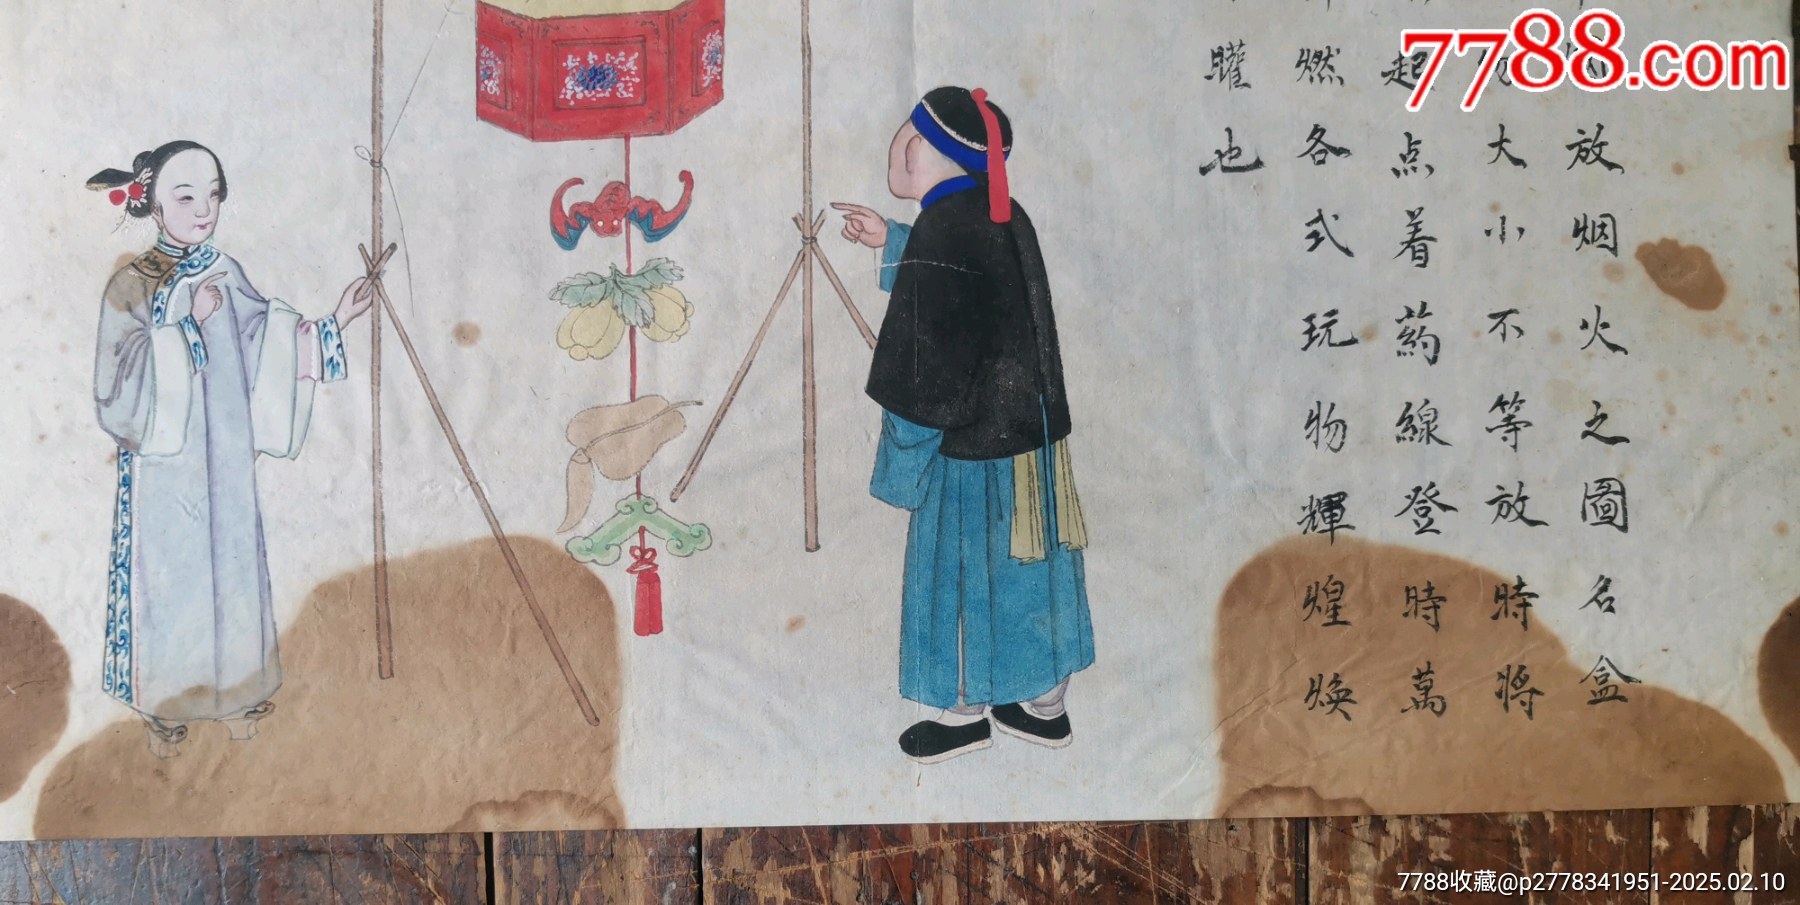 放烟火之圖名盒
大小不等放時將
起点着葯線登時萬
燃各式玩物輝煌煥
也
7788.com
7788收藏@p2778341951-2025.02.10